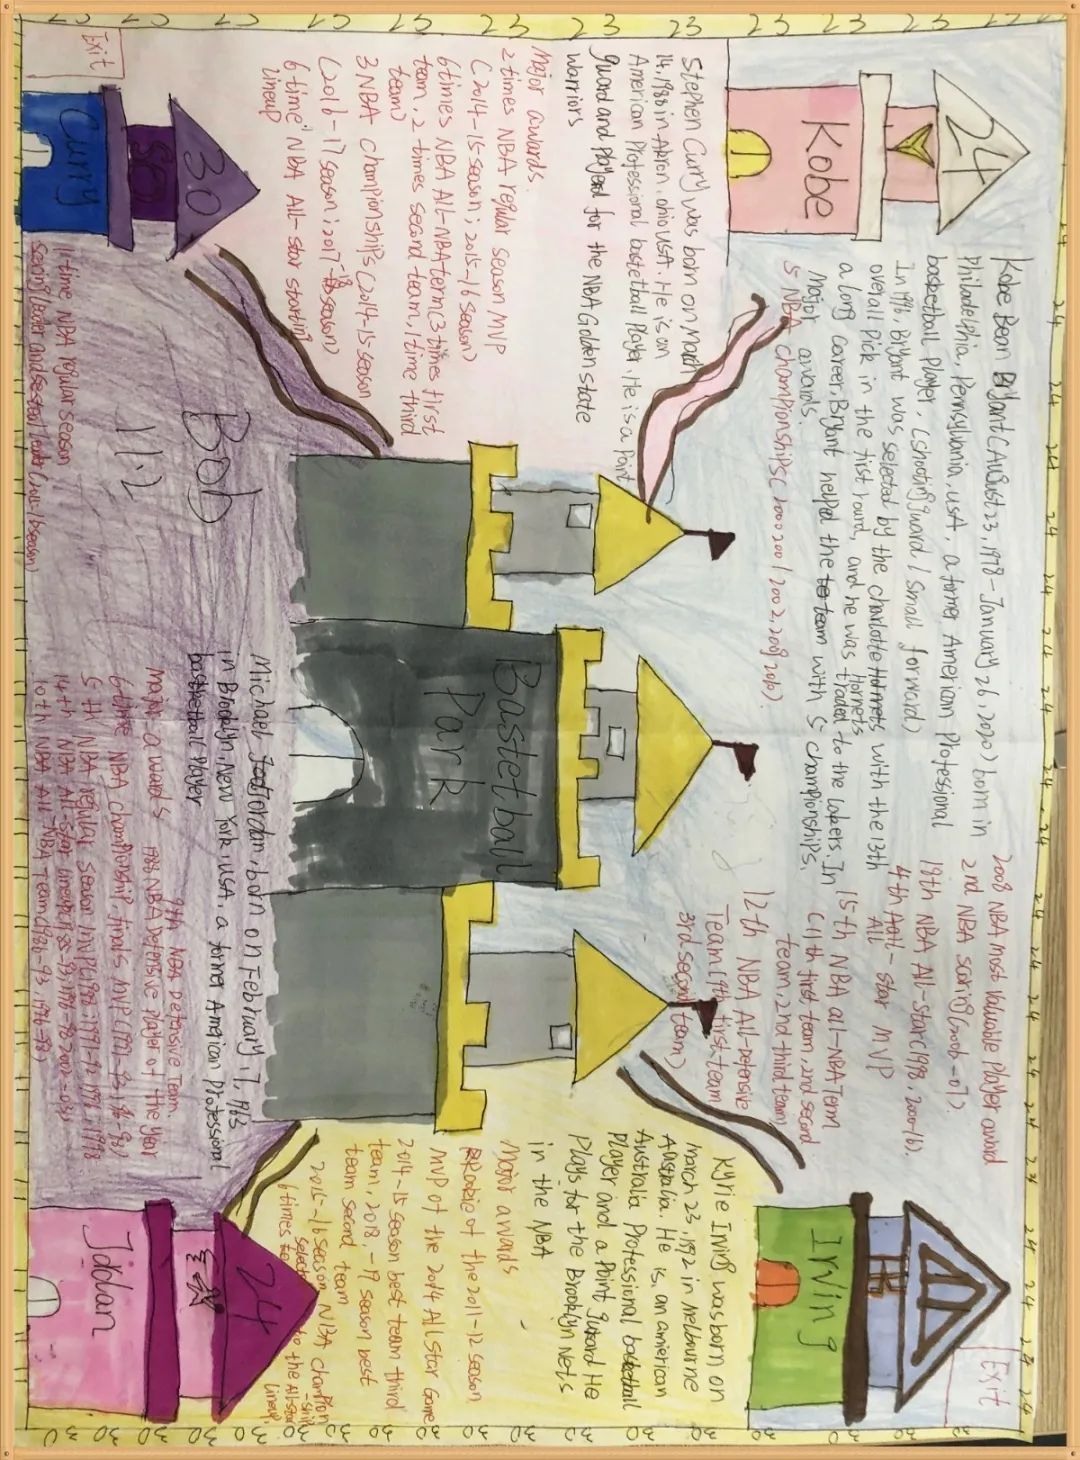 24
Kobe
Kobe Bean Bryant (August 23, 1978-January 26, 2020) born in
philadelphia, Pennsylvania, USA, a former American Professional
basketball player, (shooting guard / Small forward)
In 1996 Bryant was selected by the charlotte Hornets with the 13th
Hornets
overall Pick in the first round, and he was traded to the Lakers. In
a long career, Bryant helped the team with 5 championships.
Major awards.
5 NBA championships (2000 2001 2002, 2009 2010)
2008 NBA most valuable player award
2nd NBA scoring (2006-07).
18th NBA All-star (1998, 2000-16).
4th All-star MVP
All
15th NBA all-NBA Term
(11th first team, 2nd second
team, 2nd third team
12th NBA All-defensive
Team (9th first team
3rd second team)
Exit
Irving
Kyrie Irving was born on
march 23, 1992 in Melbourne
Australia. He is an american
Australia Professional basketball
Player and a Point guard He
Plays for the Brooklyn Nets
in the NBA
Major awards
Rookie of the 2011-12 season
MVP of the 2014 All Star Game
2014-15 season best team third
team, 2018-9 season best
team second team
2015-16 season NBA champion
-ship
6 times selected to the All-star
lineup
Stephen Curry was born on March
14, 1988 in Akron, ohio USA. He is an
American Professional basketball Player. He is a Point
guard and played for the NBA Golden State
Warriors
Major awards.
2 times NBA regular season MVP
(2014-15 season; 2015-16 season)
6 times NBA All-NBA term (3 times first
team, 2 times second team, 1 time third
team)
3 NBA championships (2014-15 season
(2016-17 season; 2017-18 season)
6 time NBA All-star starting
lineup
1-time NBA regular season
Exit
30
Curry
Basketball
Park
Bob
11.2
Michael Jordan, born on February 17, 1963
in Brooklyn, New York, USA, a former American Professional
basketball player
major awards
9th NBA Defensive Team.
1988 NBA Defensive player of the year
5th NBA regular season MVP
10th NBA All-NBA Team
24
Joldan